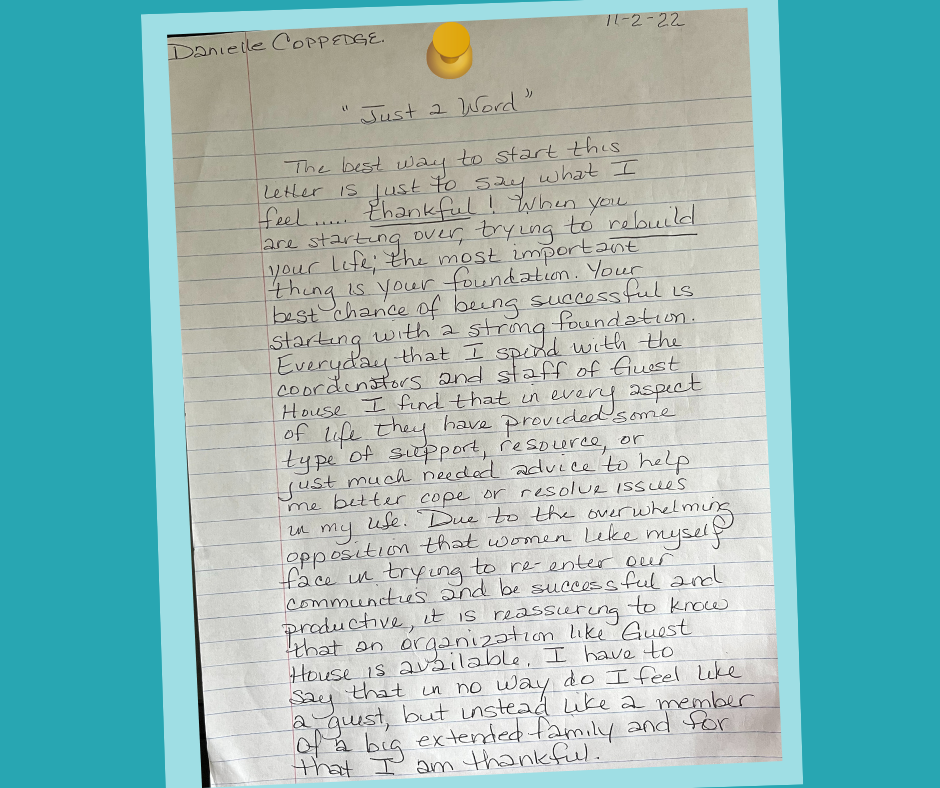 Danielle COPPEDGE.
11-2-22
"Just a Word"
The best way to start this
letter is just to say what I
feel ..... thankful! When you
are starting over, trying to rebuild
your life; the most important
thing is your foundation. Your
best chance of being successful is
starting with a strong foundation.
Everyday that I spend with the
coordinators and staff of Guest
House I find that in every aspect
of life they have provided some
type of support, resource, or
just much needed advice to help
me better cope or resolve issues
in my life. Due to the overwhelming
opposition that women like myself
face in trying to re-enter our
communities and be successful and
productive, it is reassuring to know
that an organization like Guest
House is available. I have to
say that in no way do I feel like
a guest, but instead like a member
of a big extended family and for
that I am thankful.